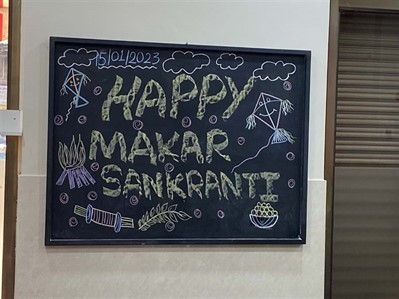 15/01/2023
HAPPY
MAKAR
SANKRANTI